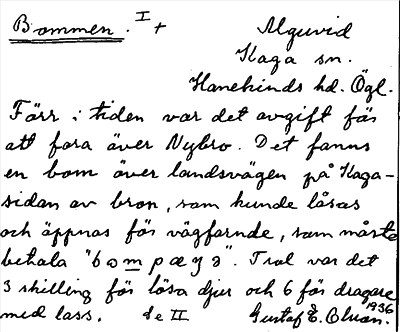 Bommen. I +
Alguvid
Kaga sn.
Hanekinds hd. Ögl.
Förr i tiden var det avgift för
att fara över Nybro. Det fanns
en bom över landsvägen på Kaga-
sidan av bron, som kunde låsas
och öppnas för vägfarnde, som måste
betala "bompæŋa". Tral var det
3 skilling för lösa djur och 6 för dragare
med lass. Se II Gustaf E. 1936